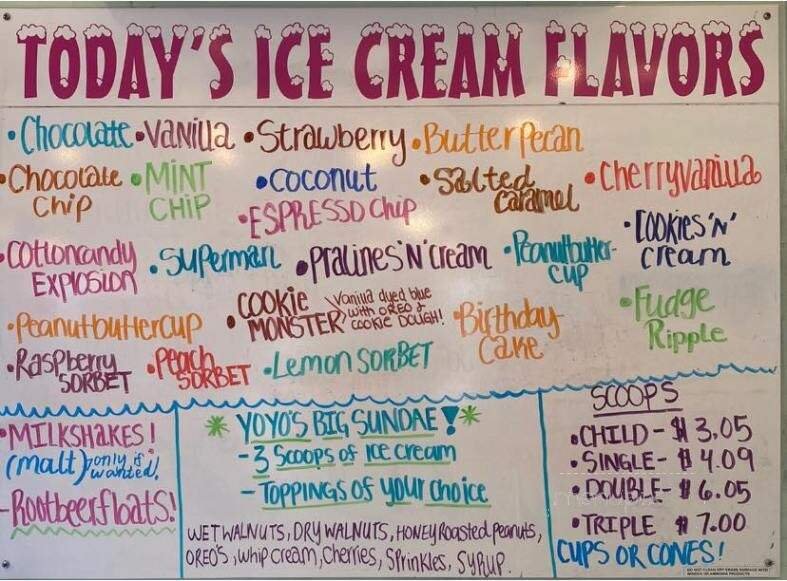 TODAY'S ICE CREAM FLAVORS
•Chocolate •Vanilla •Strawberry •Butter Pecan
•Chocolate Chip •MINT CHIP •coconut •Salted Caramel •Cherryvanilla
•ESPRESSO Chip
•Cottoncandy EXPLOSION •Superman •Pralines'N'Cream •Peanutbutter-cup •COOKIES'N' cream
•Peanutbuttercup •COOKIE MONSTER Vanilla dyed blue with OREO & COOKIE DOUGH! •Birthday Cake •Fudge Ripple
•Raspberry SORBET •Peach SORBET •Lemon SORBET
•MILKSHAKES!
(malt) only if wanted!
-Rootbeerfloats!
YOYO'S BIG SUNDAE!
-3 Scoops of ice cream
-TOPPINGS OF YOUR choice
WET WALNUTS, DRY WALNUTS, HONEY Roasted peanuts,
OREO'S, whip cream, cherries, Sprinkles, Syrup.
SCOOPS
•CHILD-$ 3.05
•SINGLE-$ 4.09
•DOUBLE-$ 6.05
•TRIPLE $ 7.00
CUPS OR CONES!